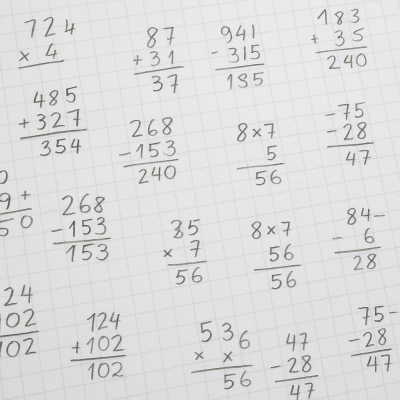 724
× 4
87
+31
37
941
- 315
185
183
+ 35
240
485
+327
354
268
-153
240
8×7
5
56
-75
-28
47
0
9 +
50
268
-153
153
35
× 7
56
8×7
56
56
84-
- 6
28
24
102
102
124
+102
102
536
× ×
56
47
-28
47
75-
-28
47